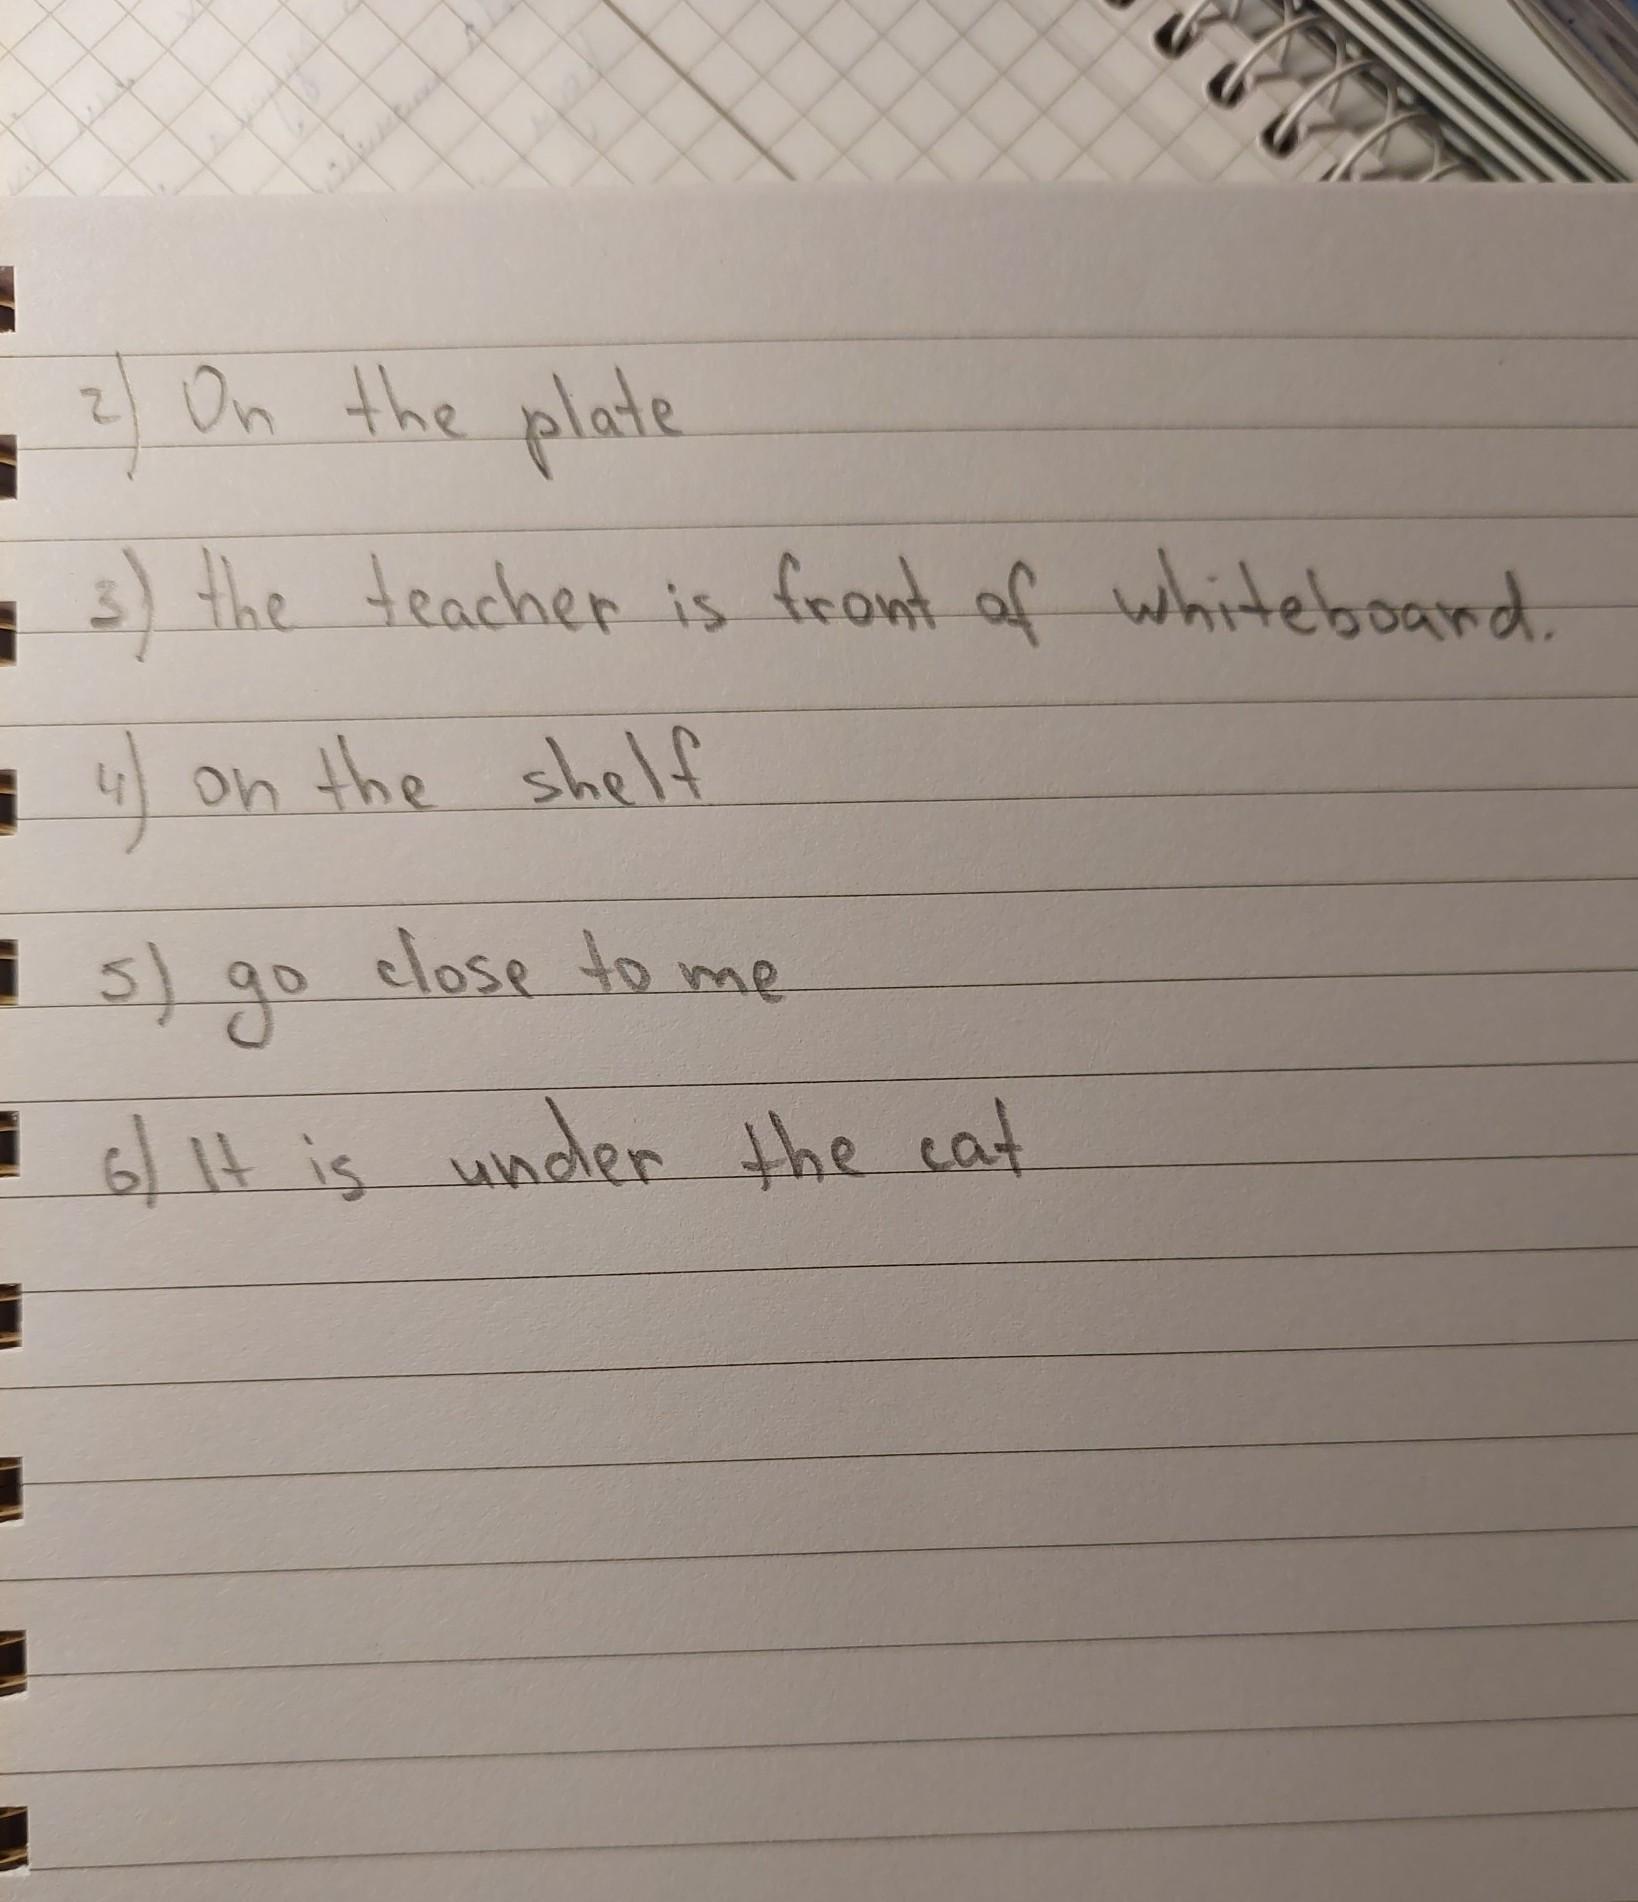 2) On the plate
3) the teacher is front of whiteboard.
4) on the shelf
5) go close to me
6) It is under the cat